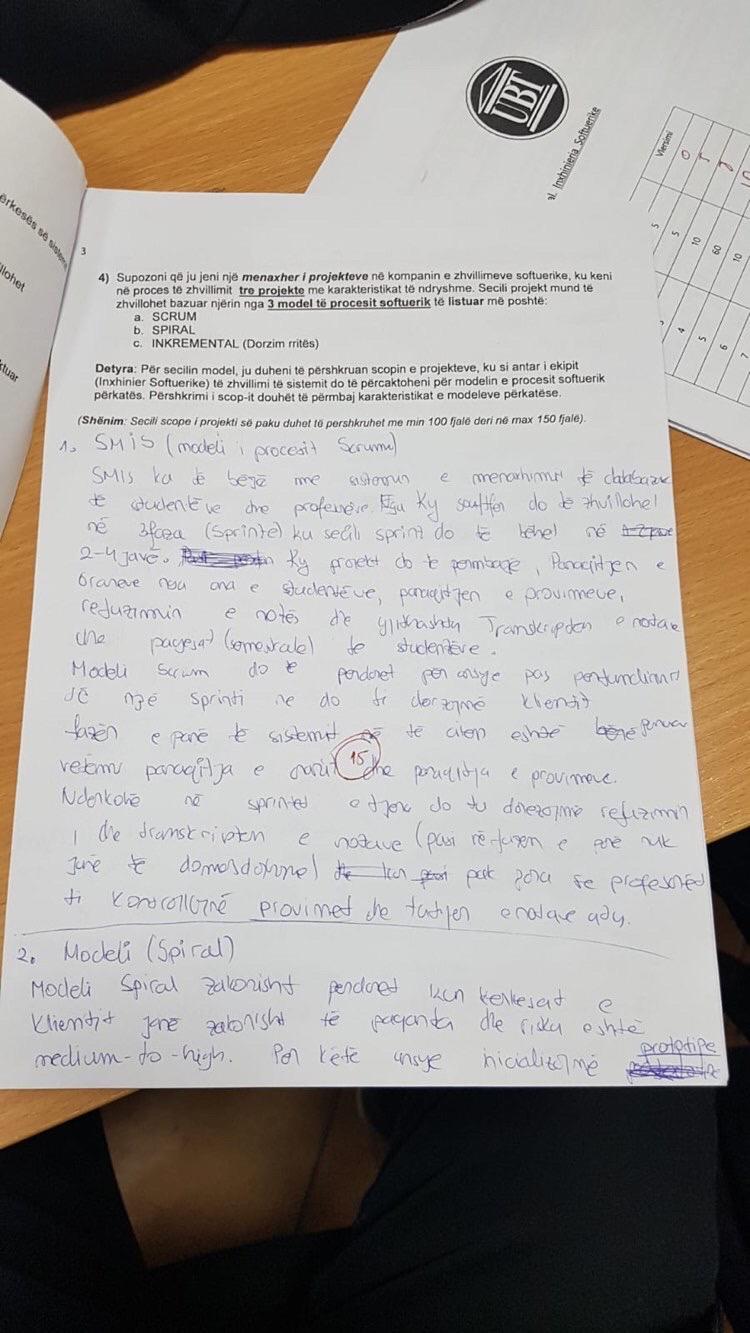 ërkesës së sistem
llohet
ktuar
UBT
Inxhinieria Softuerike
Vlersimi
5
5
10
60
10
4
5
6
7
3
4) Supozoni që ju jeni një menaxher i projekteve në kompanin e zhvillimeve softuerike, ku keni
në proces të zhvillimit tre projekte me karakteristikat të ndryshme. Secili projekt mund të
zhvillohet bazuar njërin nga 3 model të procesit softuerik të listuar më poshtë:
a. SCRUM
b. SPIRAL
c. INKREMENTAL (Dorzim rritës)
Detyra: Për secilin model, ju duheni të përshkruan scopin e projekteve, ku si antar i ekipit
(Inxhinier Softuerike) të zhvillimi të sistemit do të përcaktoheni për modelin e procesit softuerik
përkatës. Përshkrimi i scop-it douhët të përmbaj karakteristikat e modeleve përkatëse.
(Shënim: Secili scope i projekti së paku duhet të pershkruhet me min 100 fjalë deri në max 150 fjalë).
1. SMIS (modeli i procesit Scrum)
SMIS ka të bëjë me sistemin e menaxhimit të databazave
të studentëve dhe profesorëve. Ky do të zhvillohet
në 3faza (Sprinte) ku secili sprint do të bëhet në
2-4 javë. Ky projekt do te permbajë, Paraqitjen e
Oraneve nga ana e studentëve, paraqitjen e provimeve,
refuzimin e notës dhe gjithashtu Transkripten e notave
dhe pagesat (semestrale) te studentëve.
Modeli Scrum do të perdoret për arsye pas perfundimit
të një sprinti ne do ti dorzojmë klientit
fazën e parë të sistemit të cilen eshtë
vetëm paraqitja e orarit dhe paraqitja e provimeve.
15
Ndërkohë në sprintet e tjera do tu dorezojmë refuzimin
dhe transkripten e notave (pasi në fazen e parë nuk
janë të domosdoshme) pak gona se profesorët
ti kontrollojnë provimet dhe tutjen e notave aty.
2. Modeli (Spiral)
Modeli Spiral zakonisht perdoret kur kerkesat e
klientit janë zakonisht të paqarta dhe risku eshtë
medium-to-high. Për këtë arsye inicializojmë prototipe